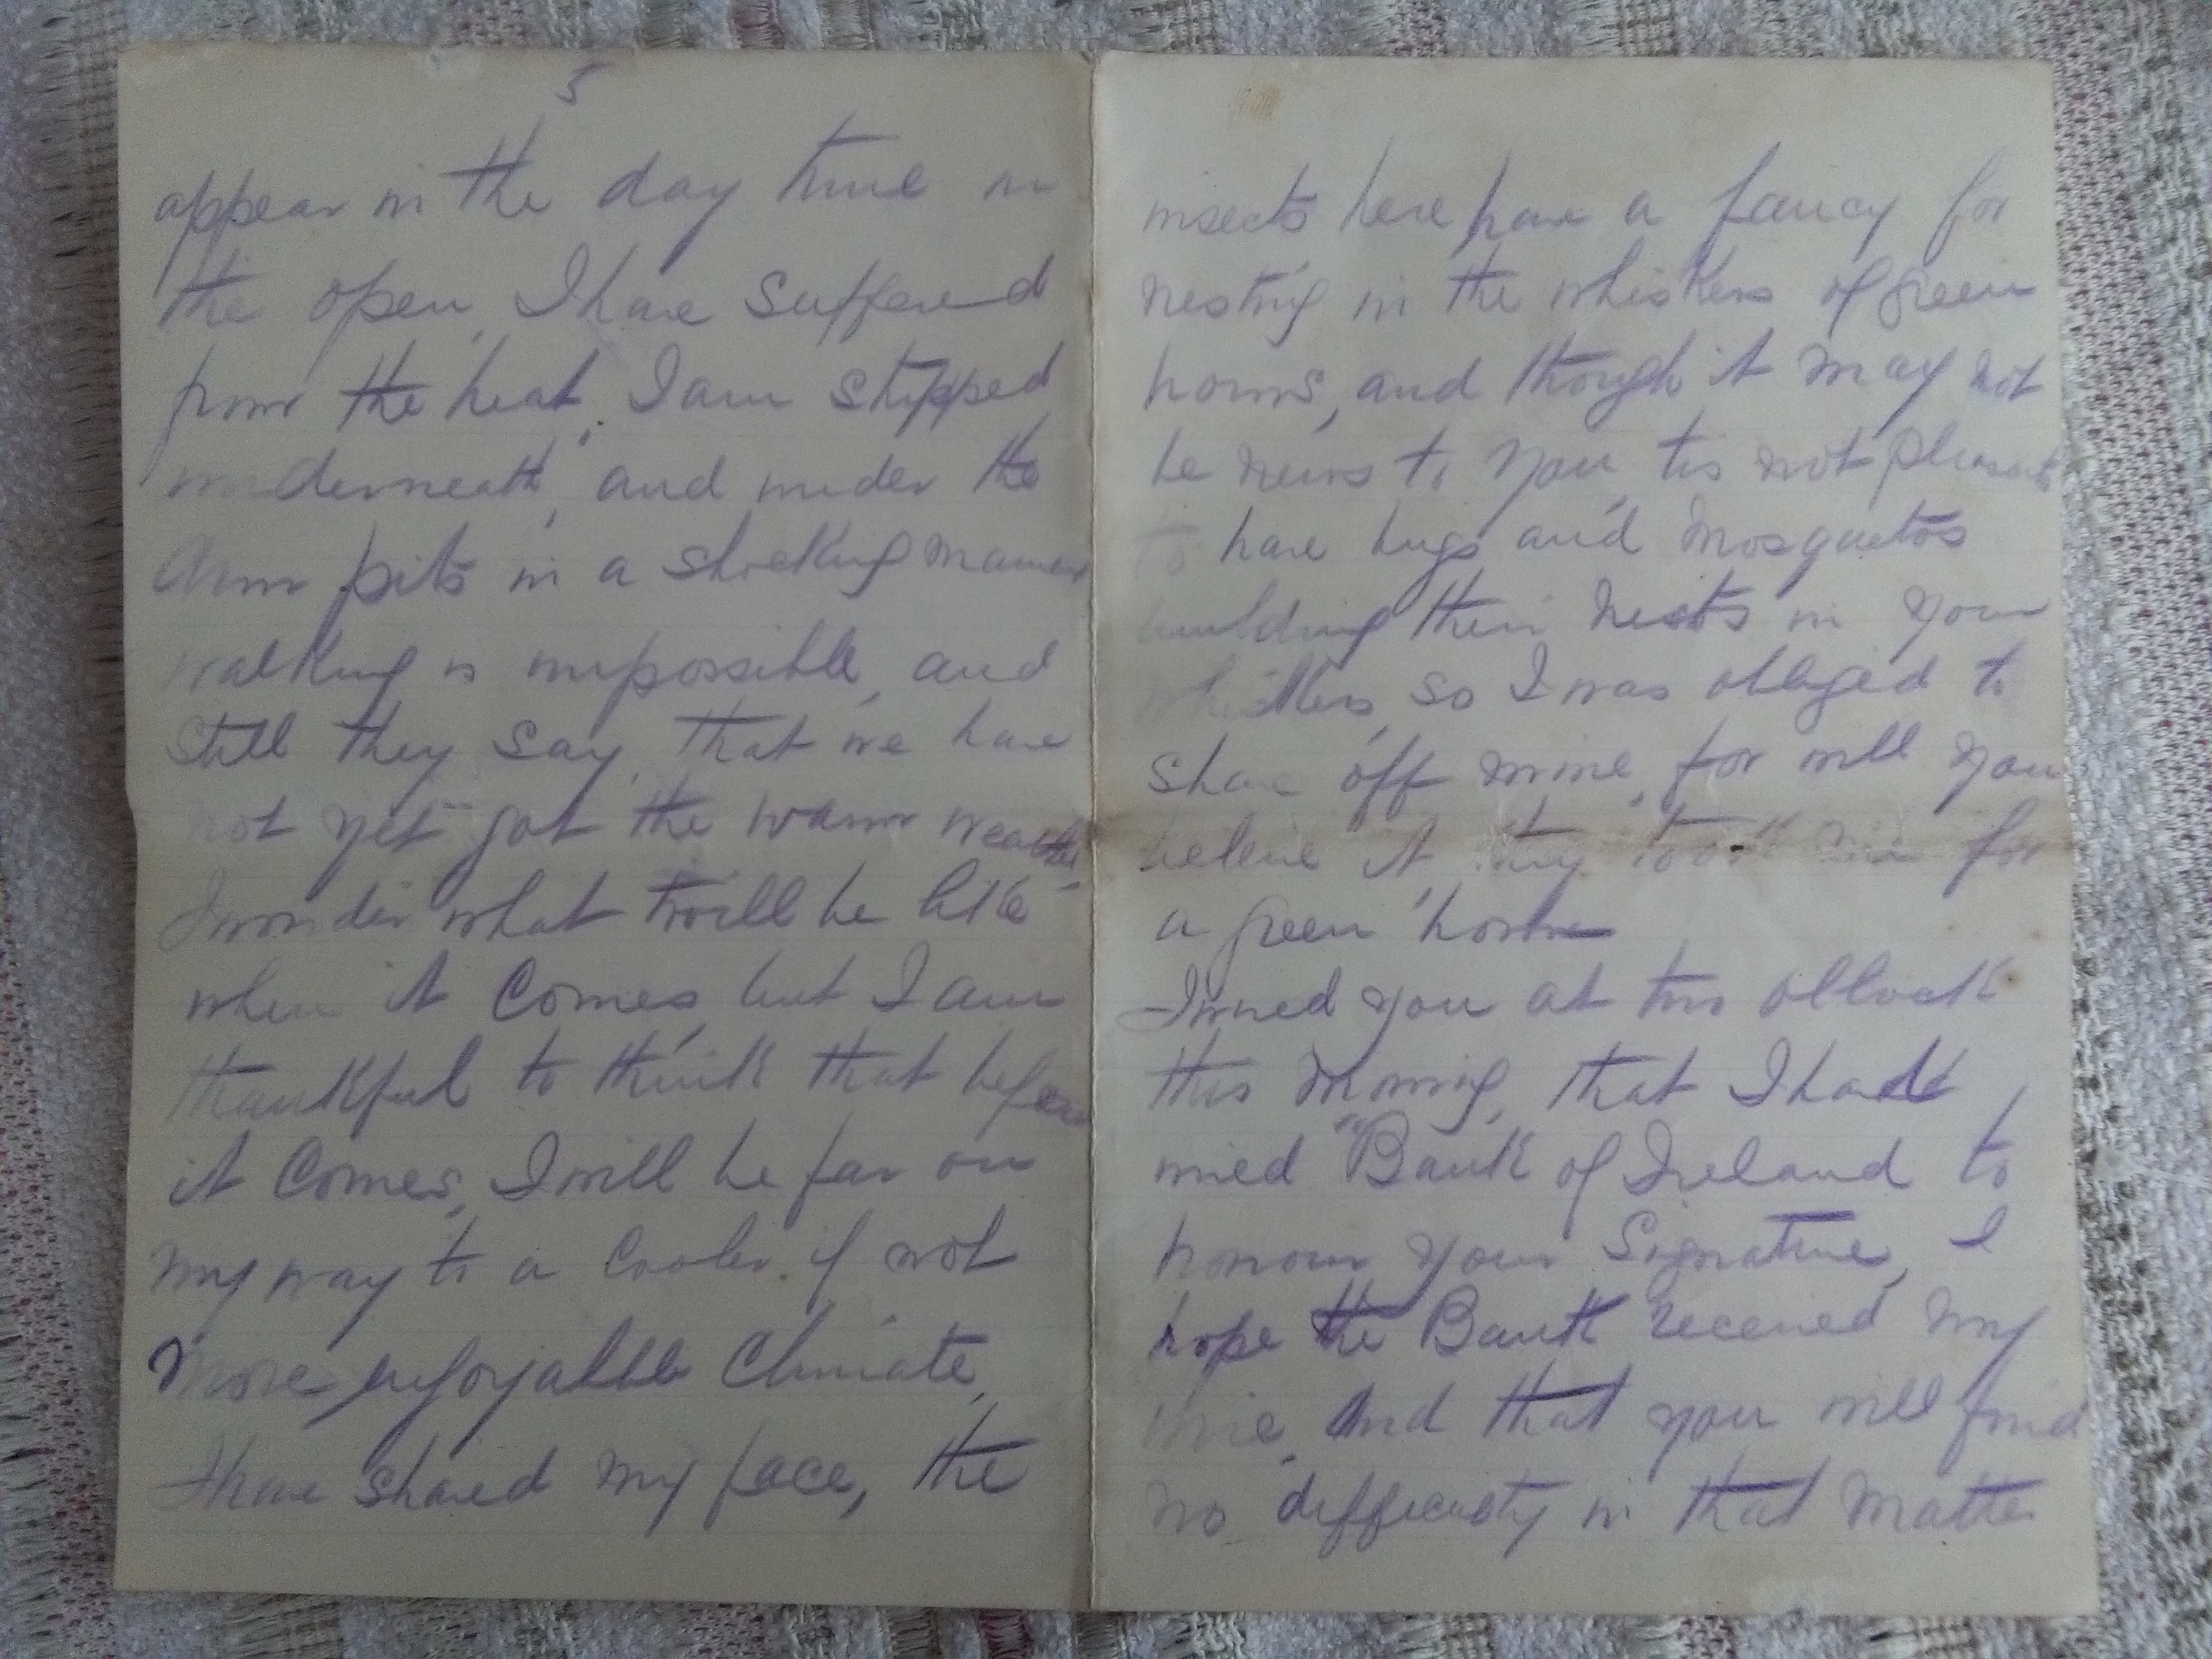 5
appear in the day time in
the open, I have suffered
from the heat, I am stripped
underneath, and under the
Arm pits in a shocking manner
walking is impossible, and
still they say, that we have
not yet got the warm weather
I wonder what twill be like
when it comes, but I am
thankful to think that before
it comes, I will be far on
my way to a cooler if not
more enjoyable climate,
I have shaved my face, the
insects here have a fancy for
nesting in the whiskers of green
horns, and though it may not
be news to you tis not pleasant
to have bugs and mosquetos
building their nests in your
whiskers, so I was obliged to
shave off mine, for will you
believe it, they took me for
a green horn
I wired you at two oclock
this morning, that I had
wired "Bank of Ireland to
honour your signature, I
hope the Bank received my
wire, and that you will find
no difficulty in that matter